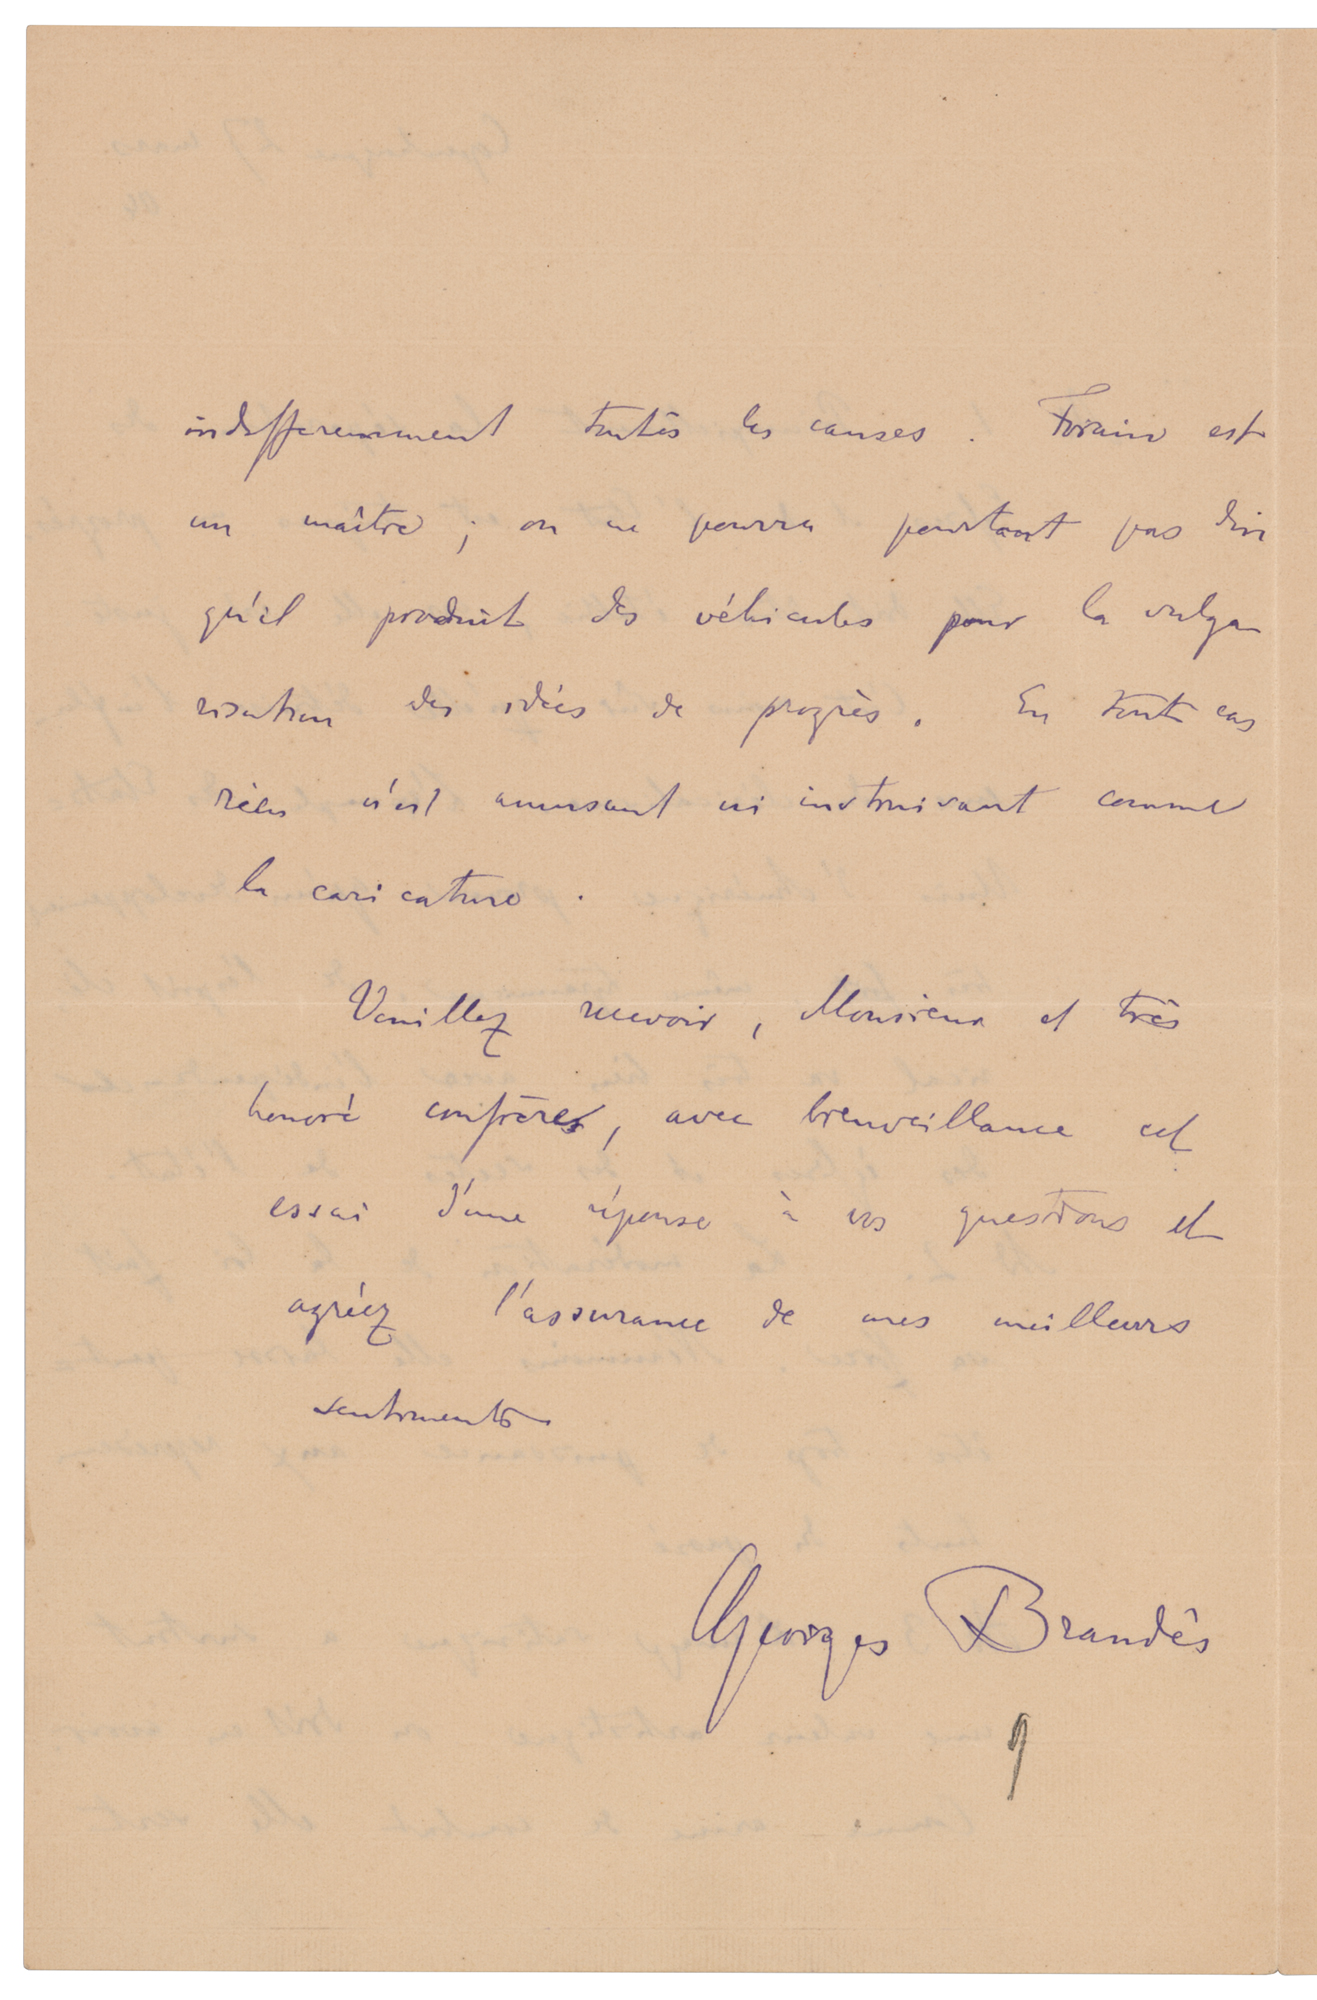 indifferemment toutes les causes. Forain est
un maître; on ne pourra pourtant pas dire
qu'il produit des véhicules pour la vulga
risation des idées de progrès. En tout cas
rien n'est amusant ni instruisant comme
la caricature.
Veuillez recevoir, Monsieur et très
honoré confrère, avec bienveillance cet
essai d'une réponse à vos questions et
agréez l'assurance de mes meilleurs
sentiments
Georges Brandès
9